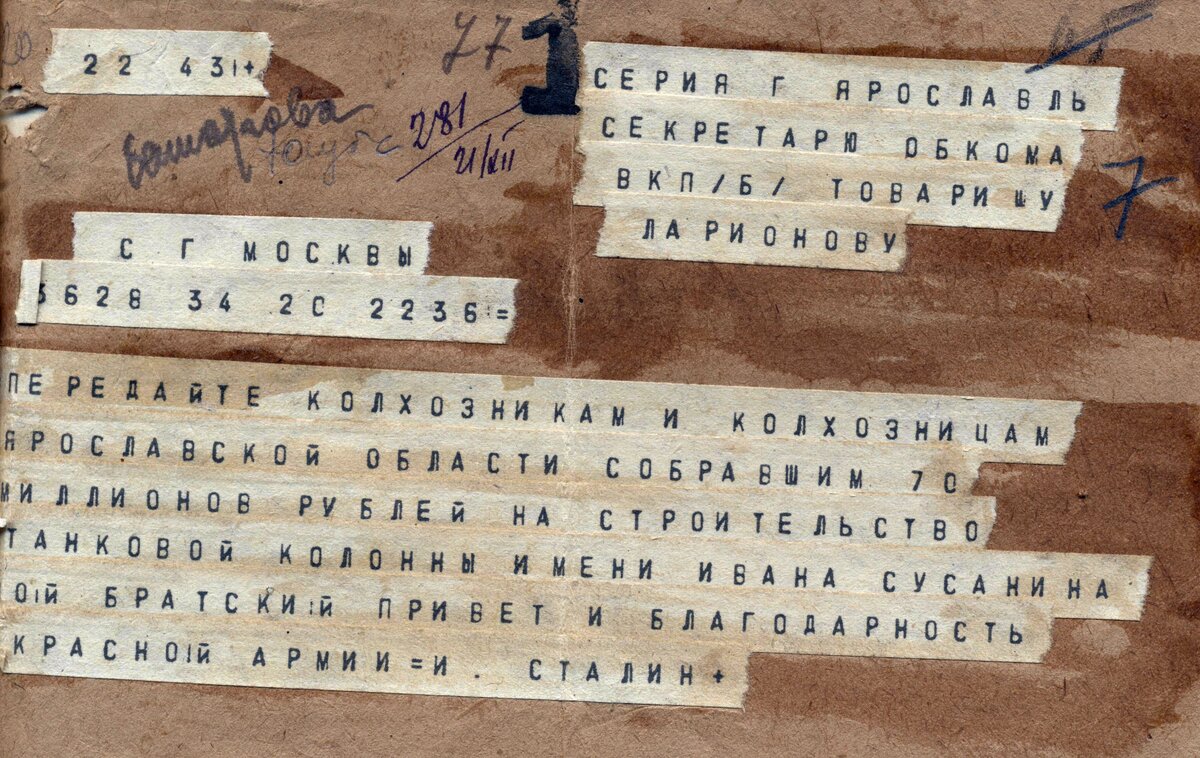 77
1
22 43+
СЕРИЯ Г ЯРОСЛАВЛЬ
СЕКРЕТАРЮ ОБКОМА
ВКП/Б/ ТОВАРИШУ
ЛАРИОНОВУ
7
281
21/XII
С Г МОСКВЫ
3628 34 20 2236=
ПЕРЕДАЙТЕ КОЛХОЗНИКАМ И КОЛХОЗНИЦАМ
ЯРОСЛАВСКОЙ ОБЛАСТИ СОБРАВШИМ 70
МИЛЛИОНОВ РУБЛЕЙ НА СТРОИТЕЛЬСТВО
ТАНКОВОЙ КОЛОННЫ ИМЕНИ ИВАНА СУСАНИНА
ОЙ БРАТСКИЙ ПРИВЕТ И БЛАГОДАРНОСТЬ
КРАСНОЙ АРМИИ=И. СТАЛИН+